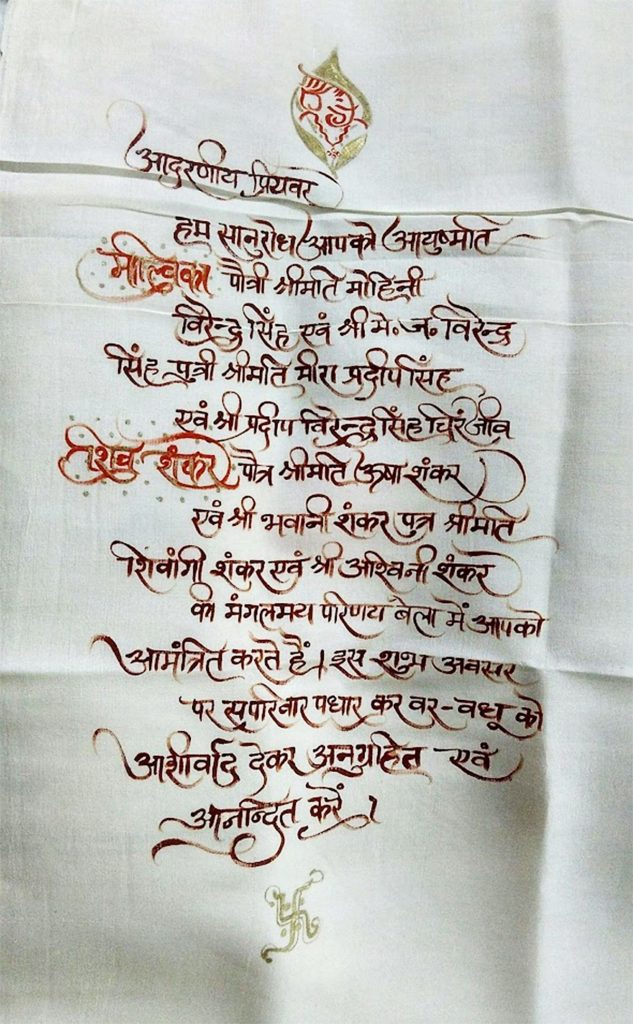 आदरणीय प्रियवर
हम सानुरोध आपको आयुष्मति
माल्विका पौत्री श्रीमति मोहिनी
विरेन्द्र सिंह एवं श्री मे. ज. विरेन्द्र
सिंह पुत्री श्रीमति मीरा प्रदीप सिंह
एवं श्री प्रदीप विरेन्द्र सिंह चिरंजीव
शंकर पौत्र श्रीमति ऊषा शंकर
एवं श्री भवानी शंकर पुत्र श्रीमति
शिवांगी शंकर एवं श्री अश्विनी शंकर
की मंगलमय परिणय बेला में आपको
आमंत्रित करते हैं। इस शुभ अवसर
पर सपरिवार पधार कर वर-वधू को
आशीर्वाद देकर अनुग्रहित एवं
आनन्दित करें।